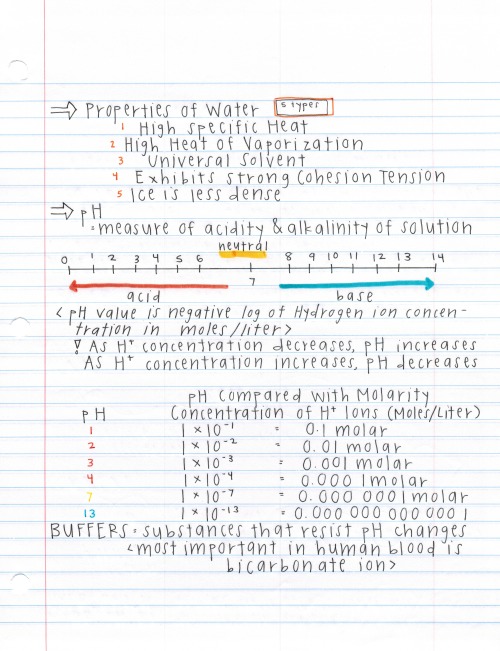 ⇒ Properties of Water 5 types
1 High Specific Heat
2 High Heat of Vaporization
3 Universal Solvent
4 Exhibits Strong Cohesion Tension
5 Ice is less dense
⇒ pH
= measure of acidity & alkalinity of solution
neutral
0 1 2 3 4 5 6 7 8 9 10 11 12 13 14
acid base
< pH value is negative log of Hydrogen ion concen-
tration in moles/liter>
! As H⁺ concentration decreases, pH increases
As H⁺ concentration increases, pH decreases
pH Compared with Molarity
pH Concentration of H⁺ Ions (Moles/Liter)
1 1 × 10⁻¹ = 0.1 molar
2 1 × 10⁻² = 0.01 molar
3 1 × 10⁻³ = 0.001 molar
4 1 × 10⁻⁴ = 0.000 1 molar
7 1 × 10⁻⁷ = 0.000 000 1 molar
13 1 × 10⁻¹³ = 0.000 000 000 000 1
BUFFERS = substances that resist pH changes
<most important in human blood is
bicarbonate ion>